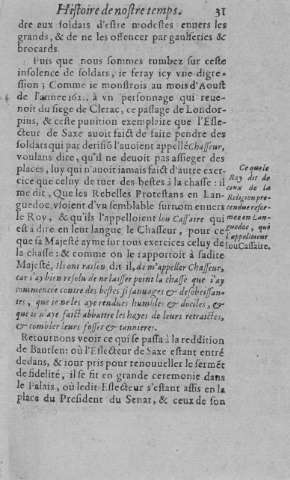 Histoire de nostre temps. 31
dre aux soldats d'estre modestes enuers les
grands, & de ne les offencer par gausseries &
brocards.
Puis que nous sommes tumbez sur ceste
insolence de soldats, ie feray icy vne digres-
sion; Comme ie monstrois au mois d'Aoust
de l'annee 1621. à vn personnage qui reue-
noit du siege de Clerac, ce passage de Londor-
pius, & ceste punition exemplaire que l'Es-
lecteur de Saxe auoit faict de faire pendre des
soldats qui par derision l'auoient appellé Chasseur,
voulans dire, qu'il ne deuoit pas assieger des
places, luy qui n'auoit iamais faict d'autre exer-
cice que celuy de tuer des bestes à la chasse: il
me dit, Que les Rebelles Protestans en Lan-
guedoc, vsoient d'vn semblable surnom enuers
le Roy, & qu'ils l'appelloient lou Cassaire qui
est à dire en leur langue le Chasseur, pour ce
que sa Majesté ayme sur tous exercices celuy de
la chasse: & comme on le rapportoit à sadite
Majesté, Ils ont raison dit il, de m'appeller Chasseur,
car i'ay bien resolu de ne laisser point la chasse que i'ay
commencee contre des bestes si sauuages & desobeissan-
tes, que ie ne les aye rendues humbles & dociles, &
que ie n'aye faict abbattre les hayes de leurs retraictes,
& combler leurs fosses & tannieres.
Retournons veoir ce qui se passa à la reddition
de Bautsen: où l'Eslecteur de Saxe estant entré
dedans, & iour pris pour renouueller le serment
de fidelité, il se fit en grande ceremonie dans
le Palais, où ledit Eslecteur s'estant assis en la
place du President du Senat, & ceux de son
Ce que le
Roy dit de
ceux de la
Religion pre-
tendue refor-
mee en Lan-
guedoc, qui
l'appelloient
lou Cassaire.